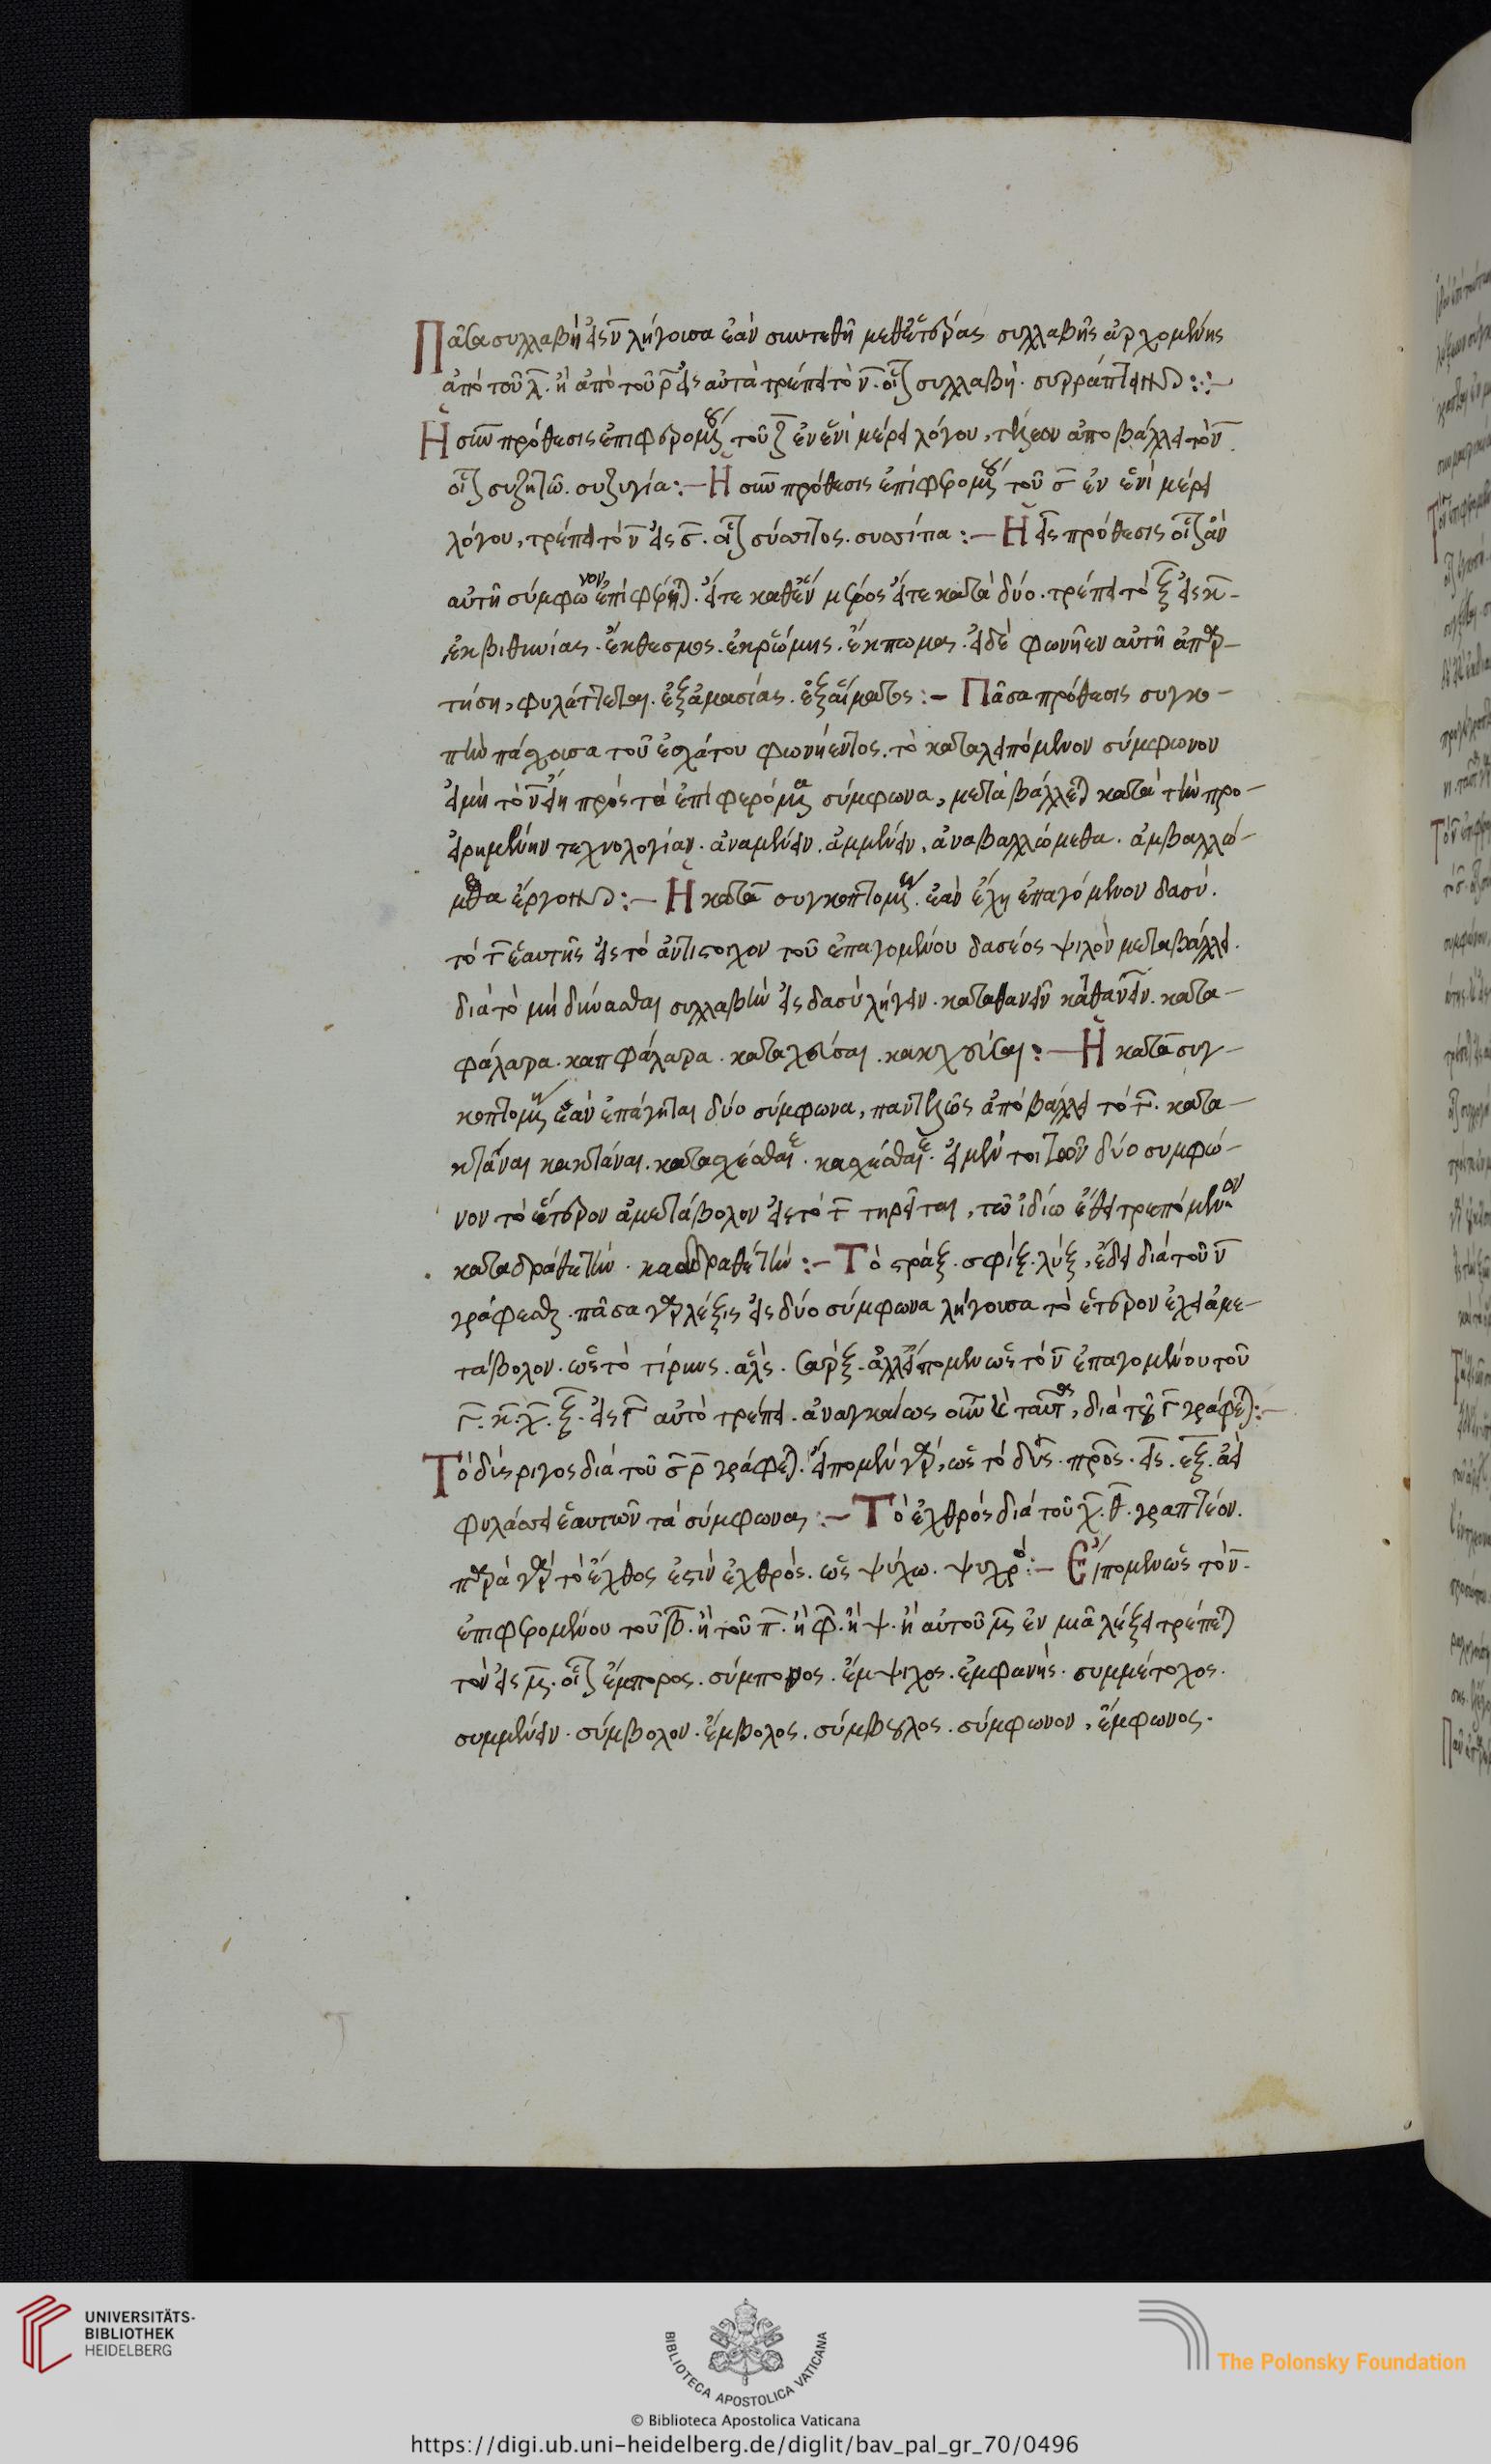 Πᾶσα συλλαβὴ εἰς ν̄ λήγουσα ἐὰν συντεθῆ μεθ' ἑτέρας συλλαβῆς ἀρχομένης
ἀπὸ τοῦ λ̄. ἢ ἀπὸ τοῦ ρ̄ εἰς αὐτὰ τρέπει τὸ ν̄. οἷον συλλαβή. συρράπτειν :·–
Ἡ σὺν πρόθεσις ἐπιφερομένου τοῦ ζ̄ ἐν ἑνὶ μέρει λόγου, τέλεον ἀποβάλλει τὸ ν̄.
οἷον συζητῶ. συζυγία :– Ἡ σὺν πρόθεσις ἐπιφερομένου τοῦ σ̄ ἐν ἑνὶ μέρει
λόγου, τρέπει τὸ ν̄ εἰς σ̄. οἷον σύσσιτος. συσσίτια :– Ἡ ἐξ πρόθεσις οἷον ἂν
αὐτῆ σύμφωνον ἐπιφέρηται. εἴτε καθ' ἓν μέρος εἴτε κατὰ δύο. τρέπει τὸ ξ̄ εἰς κ̄.
ἐκ βιθυνίας. ἔκθεσμος. ἐκ ῥώμης. ἔκπωμα. εἰ δὲ φωνῆεν αὐτῆ ἀπαρ–
τήση, φυλάττεται. ἐξ ἀμασίας. ἐξ αἵματος :– Πᾶσα πρόθεσις συγκο–
πὴν πάσχουσα τοῦ ἐσχάτου φωνήεντος. τὸ καταλειπόμενον σύμφωνον
εἰ μὴ τὸ ν̄ εἴη πρὸς τὰ ἐπιφερόμενα σύμφωνα, μεταβάλλεται κατὰ τὴν προ–
ειρημένην τεχνολογίαν. ἀναμένειν. ἀμμένειν. ἀναβαλλώμεθα. ἀμβαλλώ–
μεθα ἔργον :– Ἡ κατὰ συγκοπτομένη. ἐὰν ἔχη ἐπαγόμενον δασύ.
τὸ τ̄ ἑαυτῆς εἰς τὸ ἀντίστοιχον τοῦ ἐπαγομένου δασέος ψιλὸν μεταβάλλει.
διὰ τὸ μὴ δύνασθαι συλλαβὴν εἰς δασὺ λήγειν. καταθανεῖν κατθανεῖν. κατα–
φάλαρα. καπφάλαρα. καταχεῖσαι. κακχεῖσαι :– Ἡ κατὰ συγ–
κοπτομένη ἐὰν ἐπάγηται δύο σύμφωνα, παντελῶς ἀποβάλλει τὸ τ̄. κατα–
κτάναι κακτάναι. κατασχέσθαι. κασχέσθαι. εἰ μέντοι τῶν δύο συμφώ–
νον τὸ ἕτερον ἀμετάβολον εἰς τὸ τ̄ τηρεῖται, τῶ ἰδίω ἔθει τρεπόμενον
καταδραθέτην. καδδραθέτην :– Τὸ στράξ. σφίξ. λύξ, ἔδει διὰ τοῦ ν̄
γράφεσθαι. πᾶσα γὰρ λέξις εἰς δύο σύμφωνα λήγουσα τὸ ἕτερον ἔχει ἀμε–
τάβολον. ὡς τὸ τίρυνς. ἅλς. σάρξ. ἀλλ' εἴπομεν ὡς τὸ ν̄ ἐπαγομένου τοῦ
γ̄. κ̄. χ̄. ξ̄. εἰς γ̄ αὐτὸ τρέπει. ἀναγκαίως οὖν καὶ ταῦτα, διὰ τοῦ γ̄ γράφεται :–
Τὸ δύσριγος διὰ τοῦ σ̄ ρ̄ γράφεται. εἴπομεν γάρ, ὡς τὸ δυς. προς. εἰς. ἐξ. ἀεὶ
φυλάσσει ἑαυτῶν τὰ σύμφωνα :– Τὸ ἐχθρὸς διὰ τοῦ χ̄. θ̄. γραπτέον.
παρὰ γὰρ τὸ ἔχθος ἐστὶν ἐχθρός. ὡς ψύχω. ψυχρός :– Εἴπομεν ὡς τὸ ν̄.
ἐπιφερομένου τοῦ β̄. ἢ τοῦ π̄. ἢ φ̄. ἢ ψ. ἢ αὐτοῦ μ̄ ἐν μιᾶ λέξει τρέπεται
τὸ ν εἰς μ̄. οἷον ἔμπορος. σύμπονος. ἔμψυχος. ἐμφανής. συμμέτοχος.
συμμένειν. σύμβολον. ἔμβολος. σύμβουλος. σύμφωνον, ἔμφωνος.
UNIVERSITÄTS-
BIBLIOTHEK
HEIDELBERG
BIBLIOTECA APOSTOLICA VATICANA
The Polonsky Foundation
© Biblioteca Apostolica Vaticana
https://digi.ub.uni-heidelberg.de/diglit/bav_pal_gr_70/0496